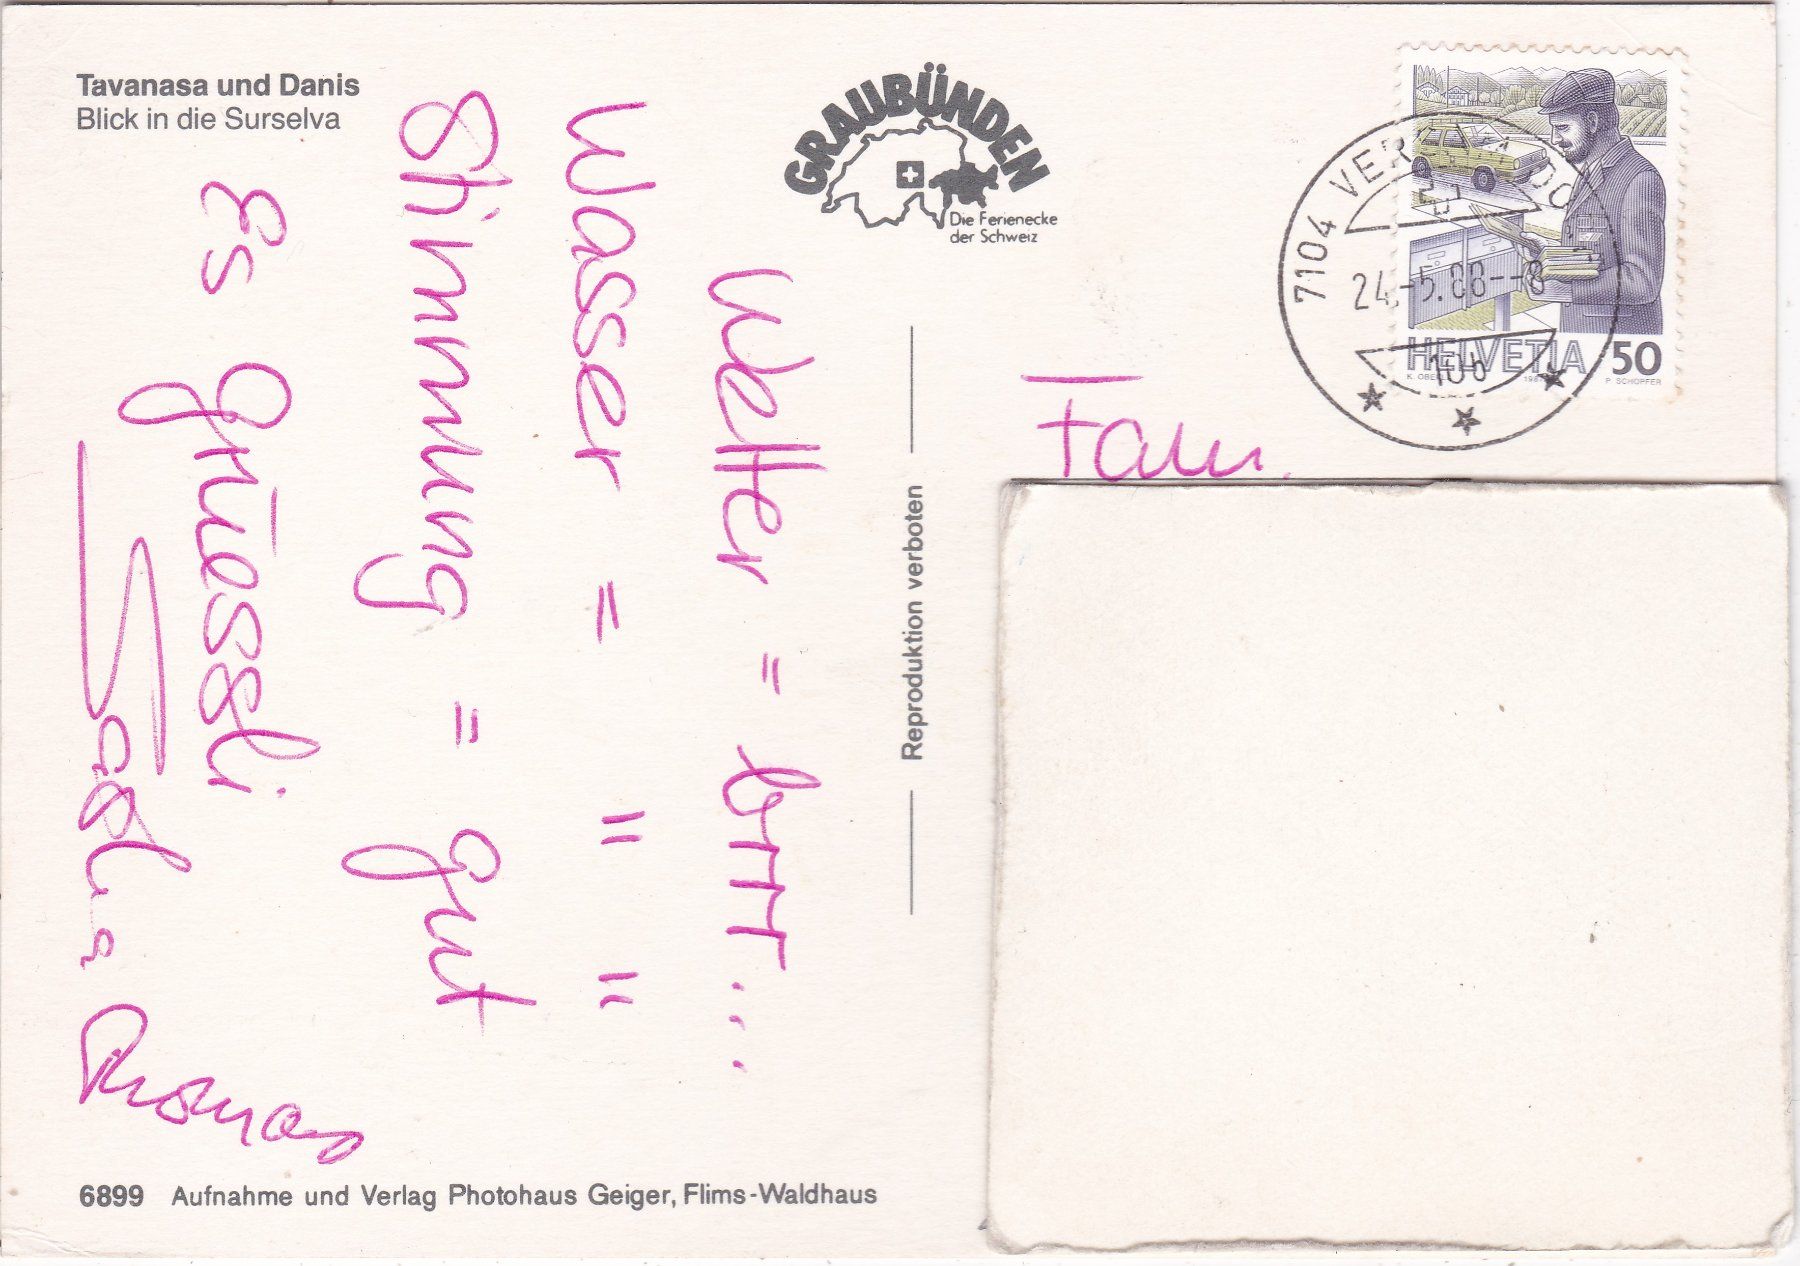 Tavanasa und Danis
Blick in die Surselva
GRAUBÜNDEN
Die Ferienecke
der Schweiz
7104 VER
24.-5.88--8
HELVETIA 50
P. SCHOPFER
Fam.
Wetter = brrr...
Wasser = " "
Stimmung = gut
Es grüessli
Thomas
Reproduktion verboten
6899 Aufnahme und Verlag Photohaus Geiger, Flims-Waldhaus